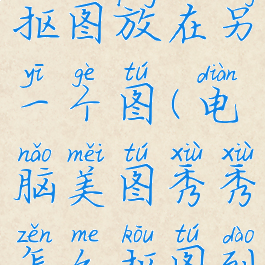 抠图放在另
yī gè tú diàn
一个图(电
nǎo měi tú xiù xiù
脑美图秀秀
zěn me kōu tú dào
怎么抠图到